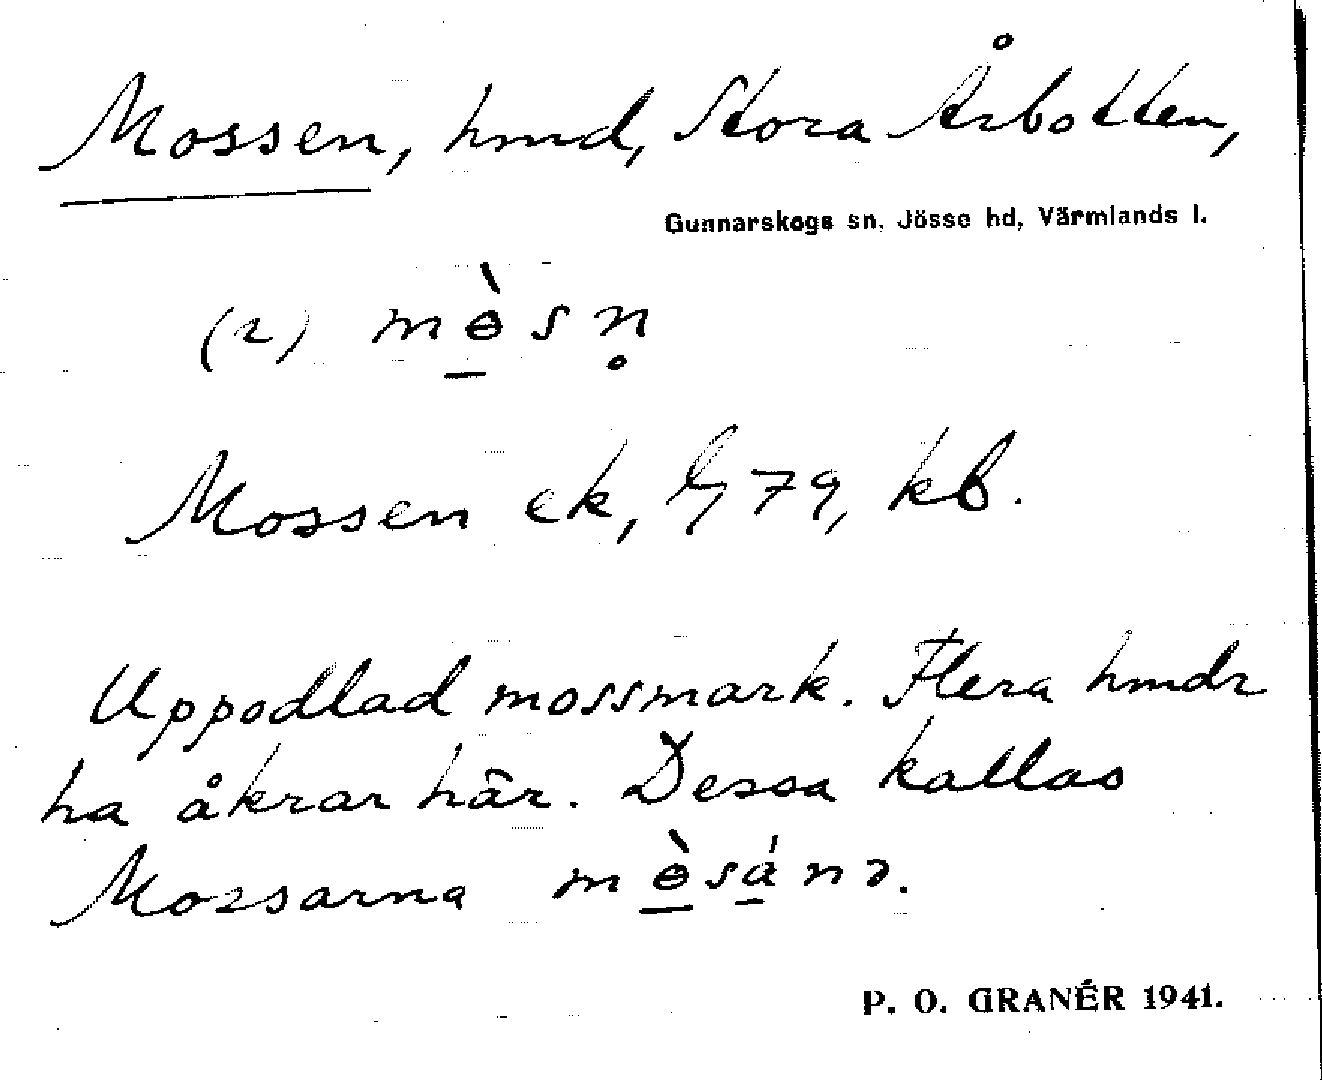 Mossen, hmd, Stora Årbotten,
Gunnarskogs sn, Jösse hd, Värmlands l.
(2) mɵ̀sn̥
Mossen ek, G 79, kb.
Uppodlad mossmark. Flera hmdr
ha åkrar här. Dessa kallas
Mossarna mɵ̀sánɘ.
P. O. GRANÉR 1941.